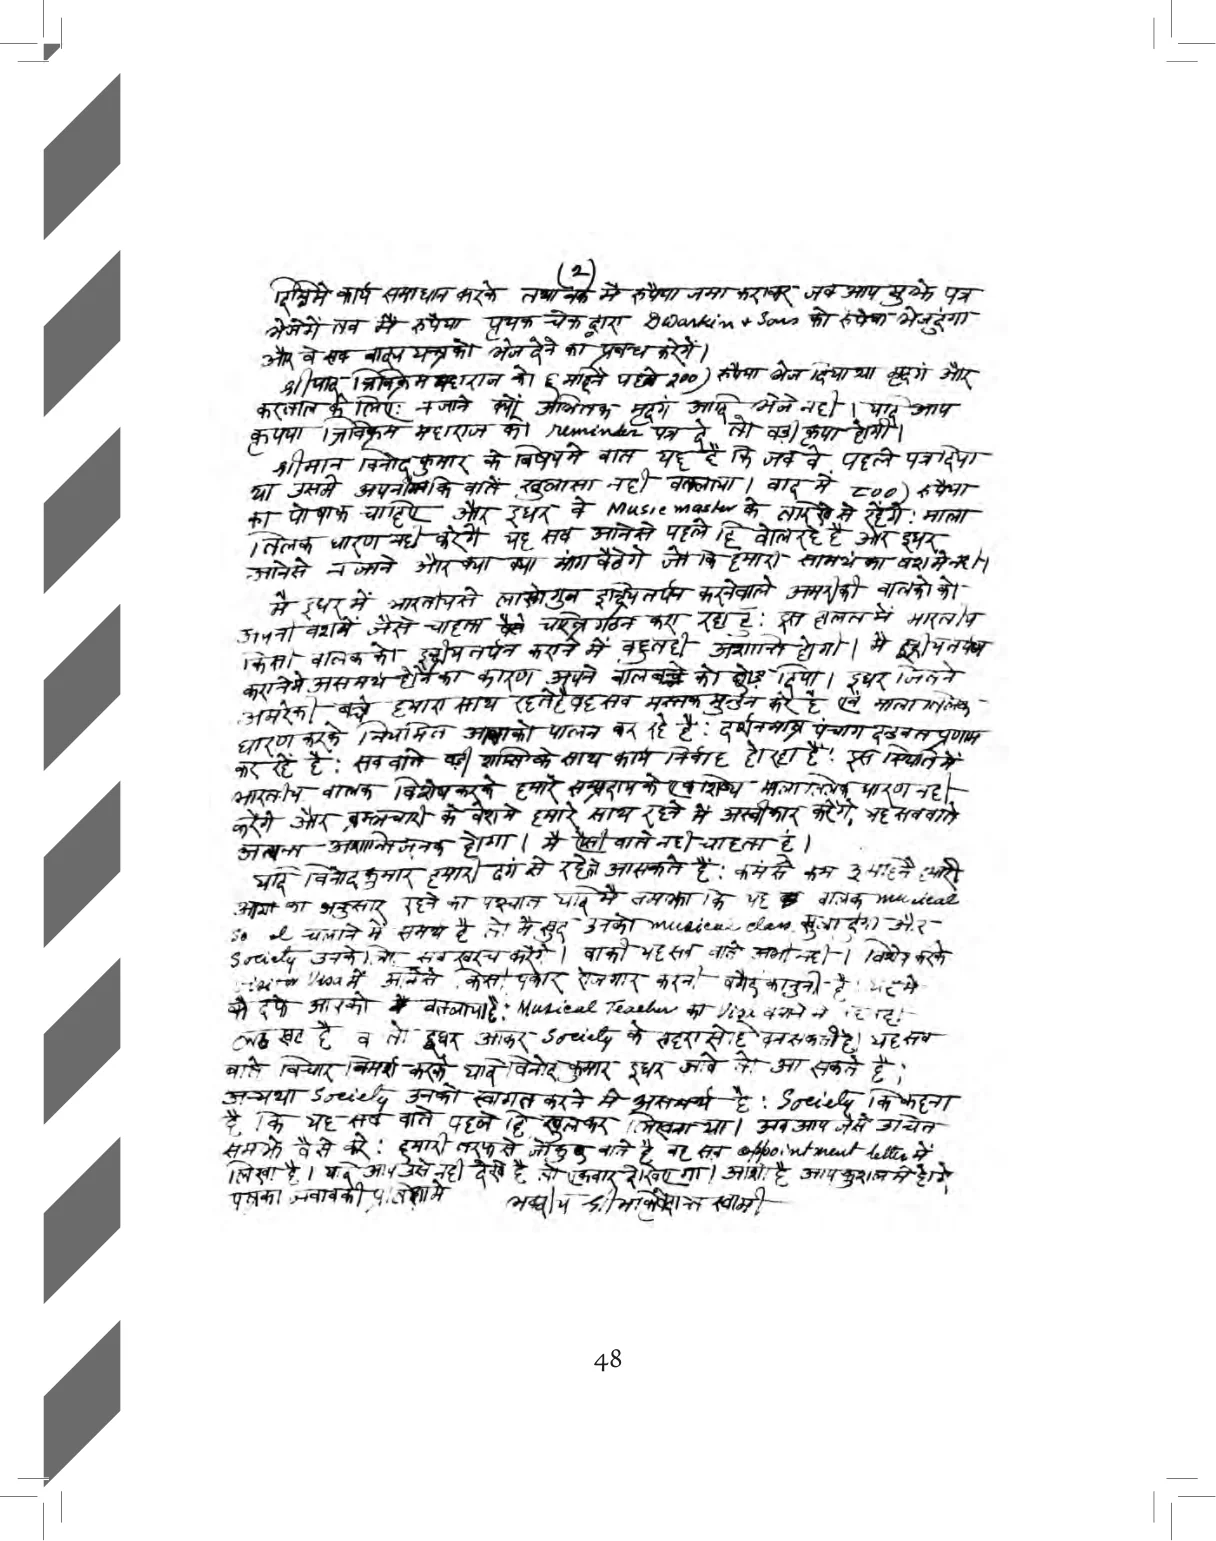 (2)
कार्य समाधान करके तथा बैंक मे रुपैया जमा कराकर जब आप मुझे पत्र
भेजेगें तब मै रुपैया पृथक चेक द्वारा Dwarkin & Sons को रुपैया भेजदुंगा
और वे सब वाद्य यन्त्रको भेज देने का प्रबन्ध करेगें।
श्रीपाद त्रिविक्रम महाराज को ६ महिने पहले २००) रुपैया भेज दिया था मृदगं और
करताल के लिए: न जाने क्यों अभितक मृदगं आदि भेजे नही। यदि आप
कृपया त्रिविक्रम महाराज को reminder पत्र दे तो बड़ी कृपा होगी।
श्रीमान विनोद कुमार के विषयमे बात यह है कि जब वे पहले पत्र दिया
था उसमे अपनी कि बातें खुलासा नही बतलाया। बाद में ८००) रुपैया
का पोषाक चाहिए और इधर वे Music master के तौर से रहेंगे: माला
तिलक धारण नही करेगें यह सब आनेसे पहले हि बोल रहे है और इधर
आनेसे न जाने और क्या क्या मांग बैठेगे जो कि हमारी सामर्थ का वश मे नही।
मै इधर में भारतीयसे लाखोगुन इन्द्रियतर्पन करनेवाले अमरीकी बालको को
अपनी वशमें जैसे चाहता वैसे चरित्र गठन करा रहा हुं: इस हालत में भारतीय
किसी बालक को इन्द्रीयतर्पन कराने में बहुतही अशान्ति होगी। मै इन्द्रीयतर्पन
करानेमे असमर्थ होनेका कारण अपने बालबच्चे को छोड़ दिया। इधर जितने
अमरेकी बच्चे हमारा साथ रहतेहै वह सब मस्तक मुन्डन करे है एवं माला तिलक
धारण करके नियमित आज्ञाको पालन कर रहे है: दर्शनमात्र पंचाग दंडवत प्रणाम
कर रहें है: सब बाते बड़ी शान्तिके साथ कार्य निर्वाह हो रहा है: इस स्थिति में
भारतीय बालक विशेष करके हमारे सम्प्रदाय के माला तिलक धारण नही
करेंगे और ब्रह्मचारी के वेशमे हमारे साथ रहने मे अस्वीकार करेंगे, यह सब बाते
अत्यन्त अशान्तिजनक होगा। मै ऐसी बाते नही चाहता हुं।
यदि विनोद कुमार हमारी ढगं से रहेतो आसकते है: कमसे कम ३ महिने हमारी
आज्ञा का अनुसार रहने का पश्चात यदि मै समझा कि यह बालक musical
चलाने मे समर्थ है तो मै खुद उनको musical class खुला दुंगा और
Society उनके लिये सब खरच करेगी। बाकी यह सब बाते अभी नही। विशेष करके
Visa में आनेसे किसी प्रकार रोजगार करना कानुनी है: यह मै
दफे आपको बतलायाहै: Musical Teacher का
है व तो इधर आकर Society के सहारा सेहि बन सकती है। यह सब
बाते विचार विमर्श करके यदि विनोद कुमार इधर आवे तो आ सकते है;
अन्यथा Society उनको स्वागत करने मे असमर्थ है: Society कि कहना
है कि यह सर्व बाते पहले हि खुलकर लिखना था। अब आप जैसे उचित
समझे वैसे करे: हमारी तरफसे जो कुछ बाते है वह सब appointment letter में
लिखा है। यदि आप उसे नही देखे है तो एकबार देखिए गा। आशा है आप कुशल मे होगे
पत्रका जवाबकी प्रतिक्षामे भवदीय श्रीभक्तिवेदान्त स्वामी
48